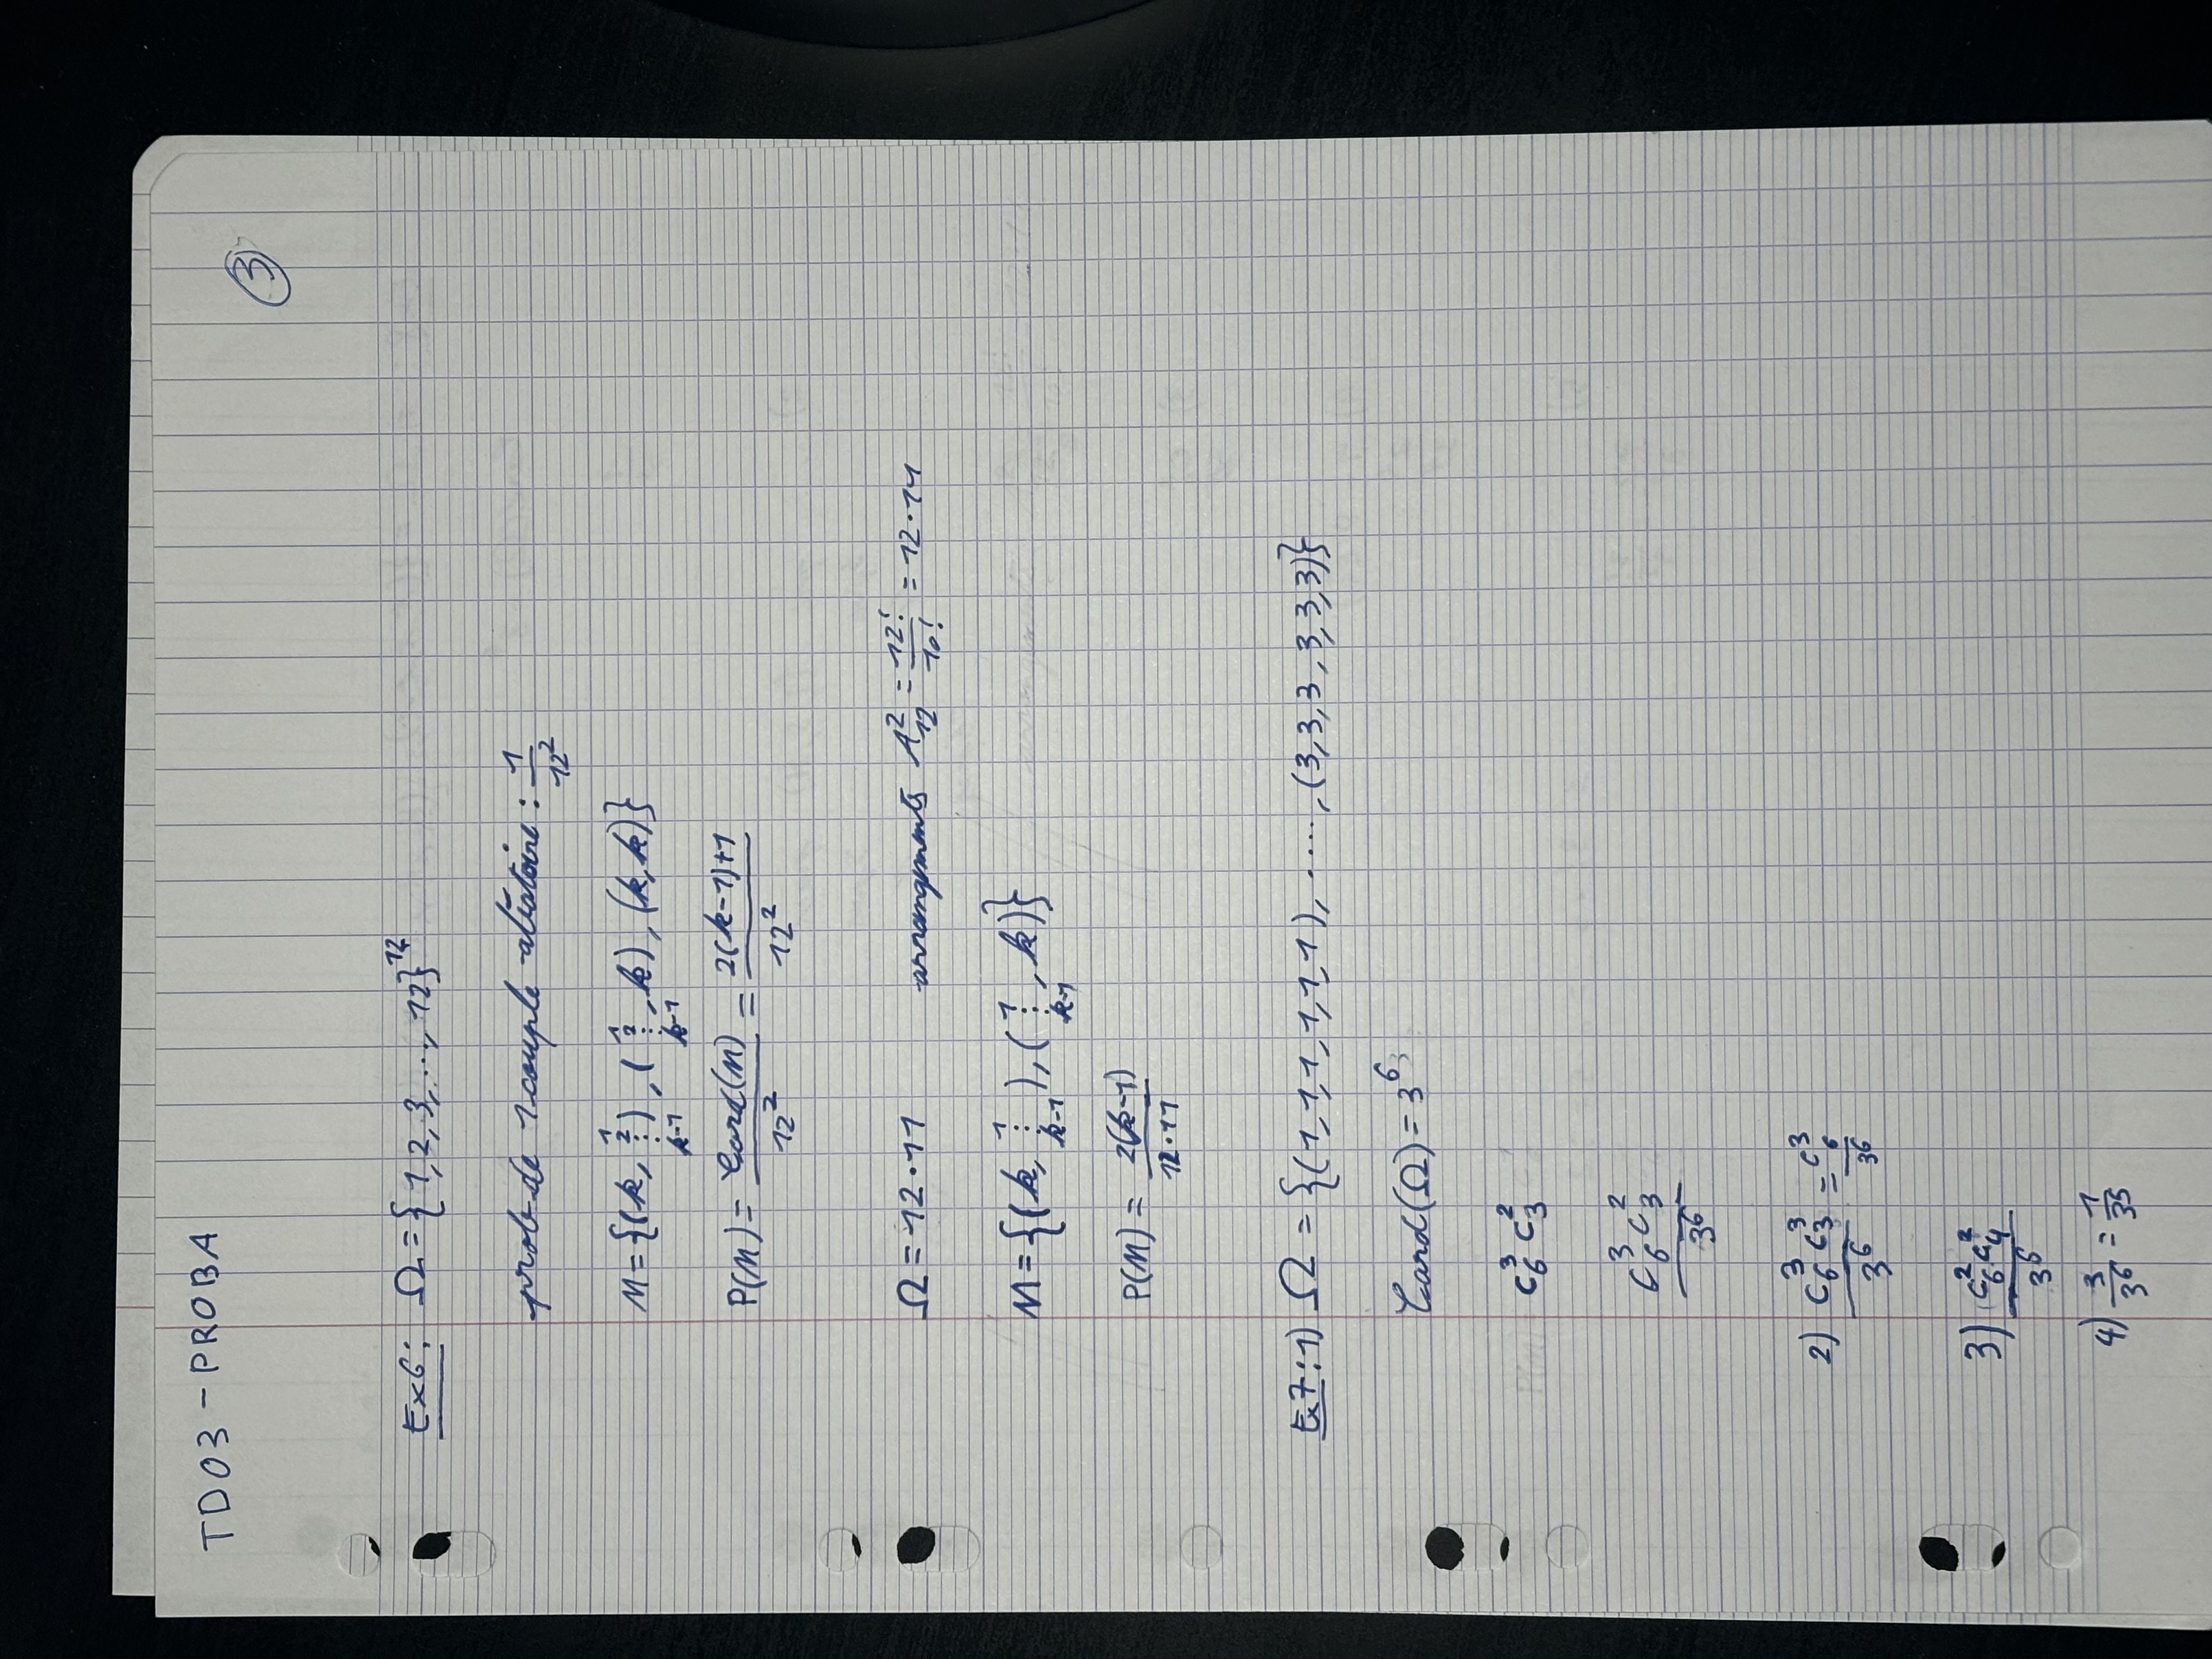 TD03-PROBA
③
Ex6: Ω = {1,2,3,...,12}¹²
prob de 1 couple aléatoire : 1/12²
M = {(k, 1 2 ⋮ k-1), (1 2 ⋮ k-1, k), (k,k)}
P(M) = Card(M)/12² = 2(k-1)+1/12²
Ω = 12·11 arrangements A²₁₂ = 12!/10! = 12·11
M = {(k, 1 ⋮ k-1), (1 ⋮ k-1, k)}
P(M) = 2(k-1)/12·11
Ex7: 1) Ω = {(1,1,1,1,1,1), ....., (3,3,3,3,3,3)}
Card(Ω) = 3⁶
C³₆ C²₃
C³₆ C²₃/3⁶
2) C³₆ C³₃/3⁶ = C³₆/3⁶
3) C²₆ C²₄/3⁶
4) 3/3⁶ = 1/3⁵